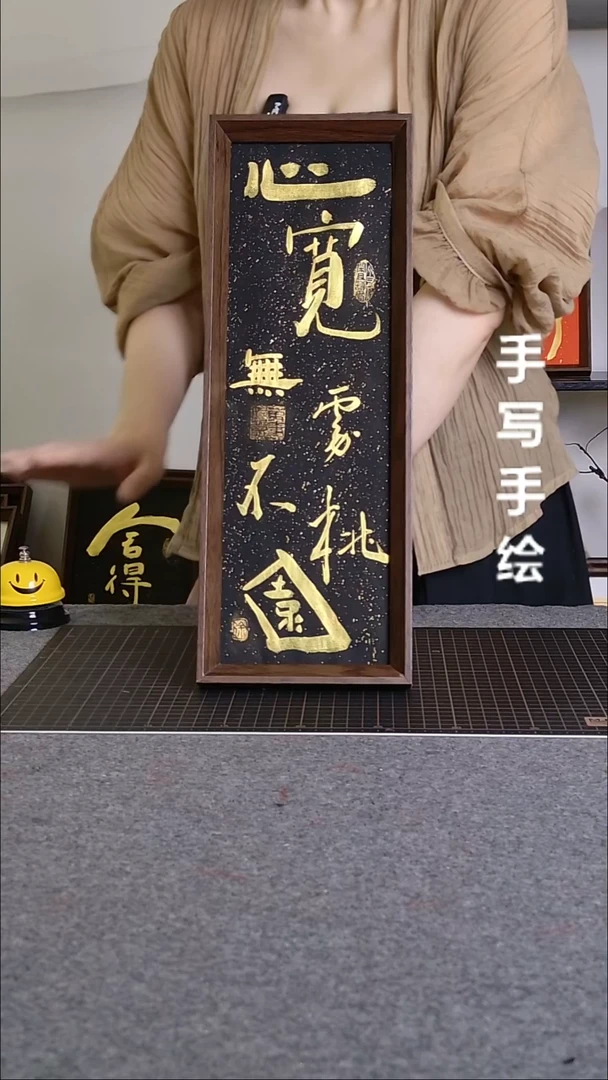 心寬無處不桃園
手写手绘
舍得